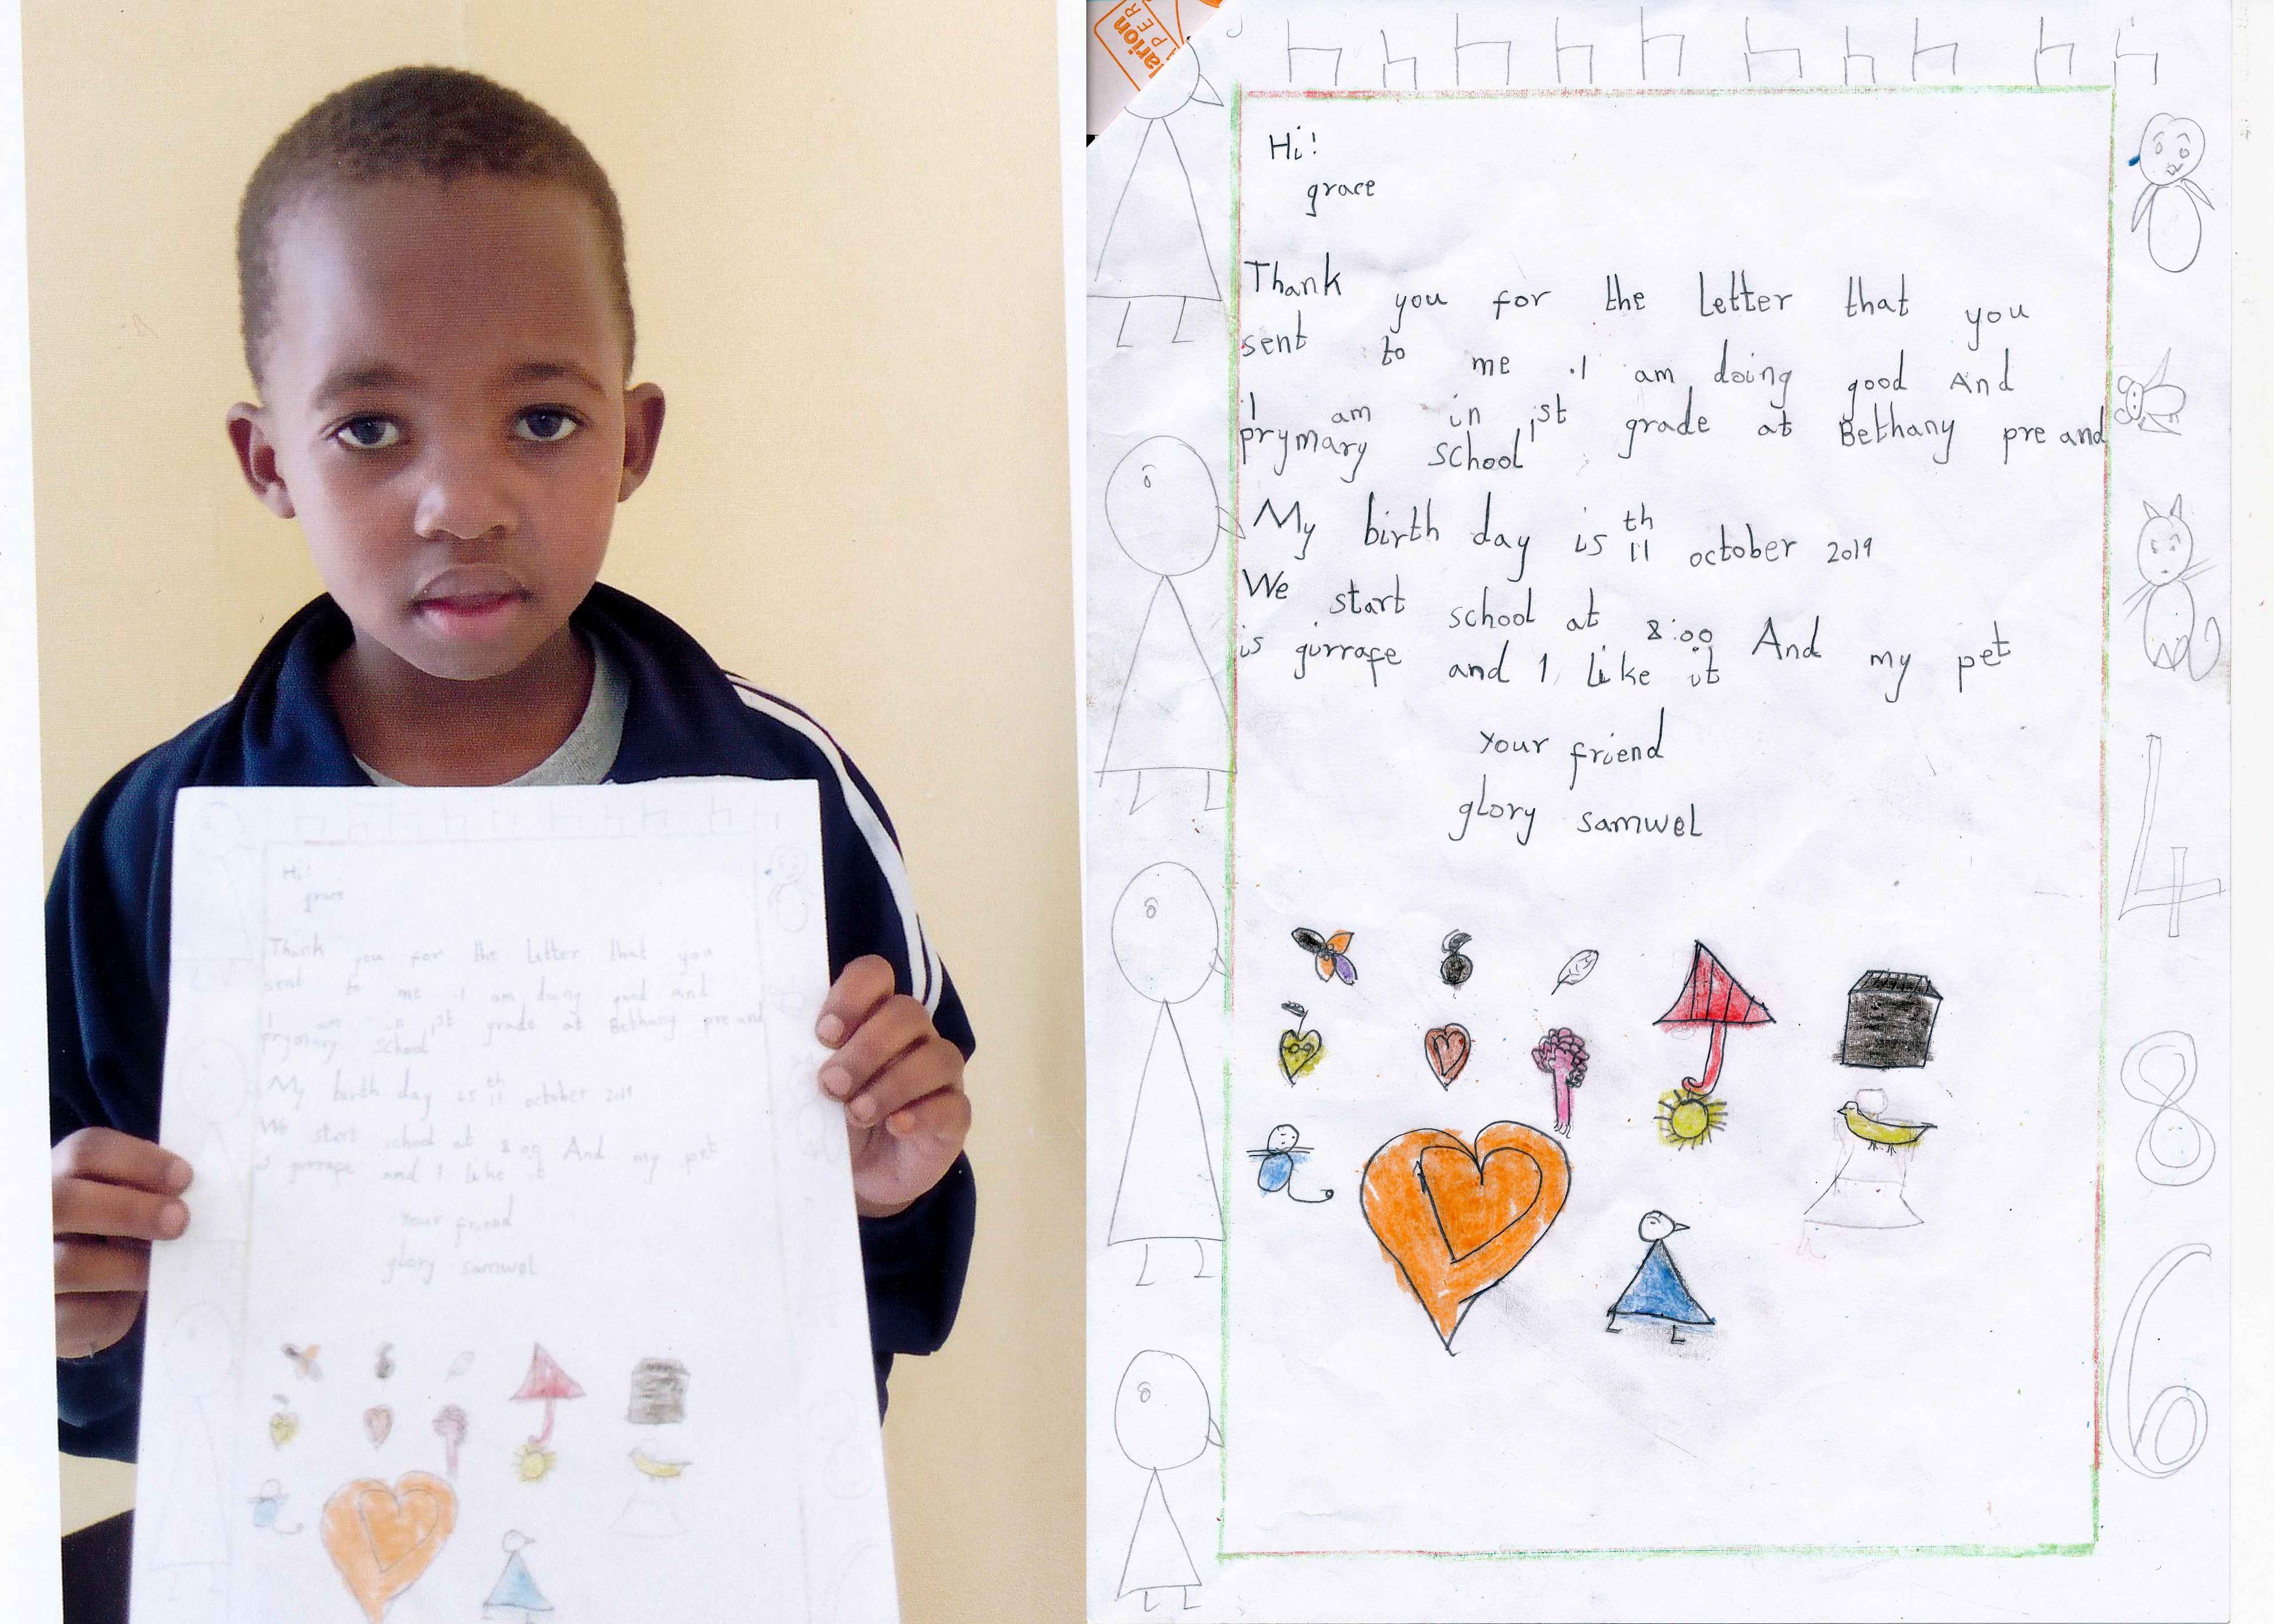 Hi!
grace
Thank you for the letter that you
sent to me . I am doing good And
I am in 1st grade at Bethany pre and
prymary school
My birth day is 11th october 2019
We start school at 8:00 And my pet
is girrafe and I like it
Your friend
glory samwel
larion
PER
Hi!
grace
Thank you for the letter that you
sent to me . I am doing good And
I am in 1st grade at Bethany pre and
prymary school
My birth day is 11th october 2019
We start school at 8:00 And my pet
is girrafe and I like it
Your friend
glory samwel
4
8
6